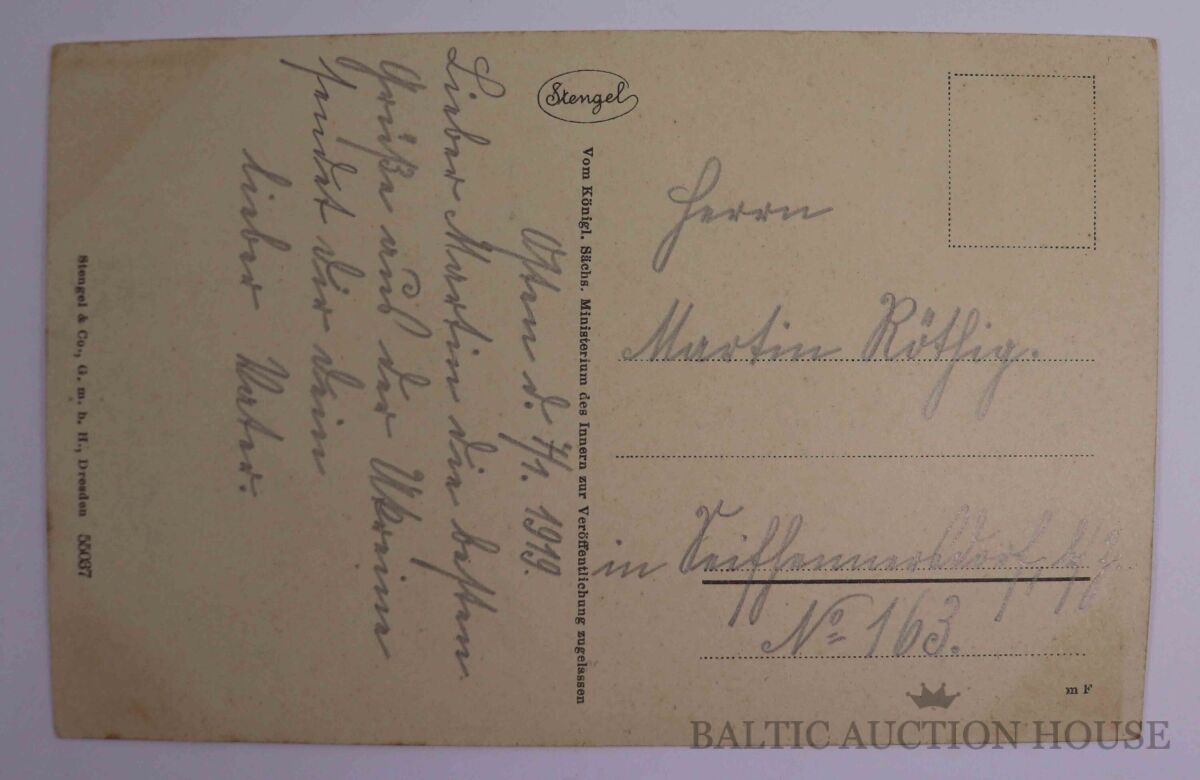 Osten d. 7/1. 1919.
Lieber Martin die besten
Grüße aus der Ukraine
sendet dir dein
lieber Vater.
Stengel
Vom Königl. Sächs. Ministerium des Innern zur Veröffentlichung zugelassen
Stengel & Co., G. m. b. H., Dresden 55087
Herrn
Martin Röthig.
in Seifhennersdorf
No 163.
m F
BALTIC AUCTION HOUSE